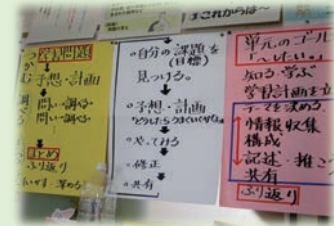 これからは〜
学習問題
予想・計画
問い-調べる
問い-調べる
まとめ
ふり返り
いかす・深める
・自分の課題を
(目標)
見つける。
・予想・計画
・やってみる
・修正
・共有
単元のゴール
「〜したい。」
知る・学ぶ
学習計画を立
テーマを決める
情報収集
構成
記述・推こ
共有
ふり返り